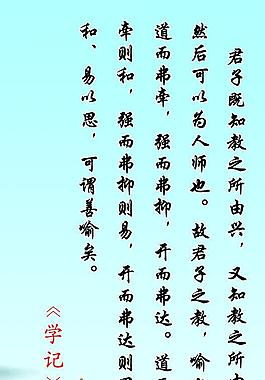 君子既知教之所由兴，又知教之所由
然后可以为人师也。故君子之教，喻
道而弗牵，强而弗抑，开而弗达。道而
牵则和，强而弗抑则易，开而弗达则思
和、易以思，可谓善喻矣。
《学记》